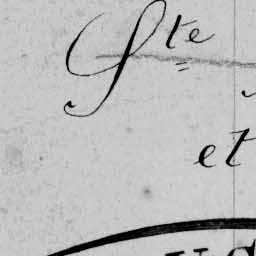 Ste
et